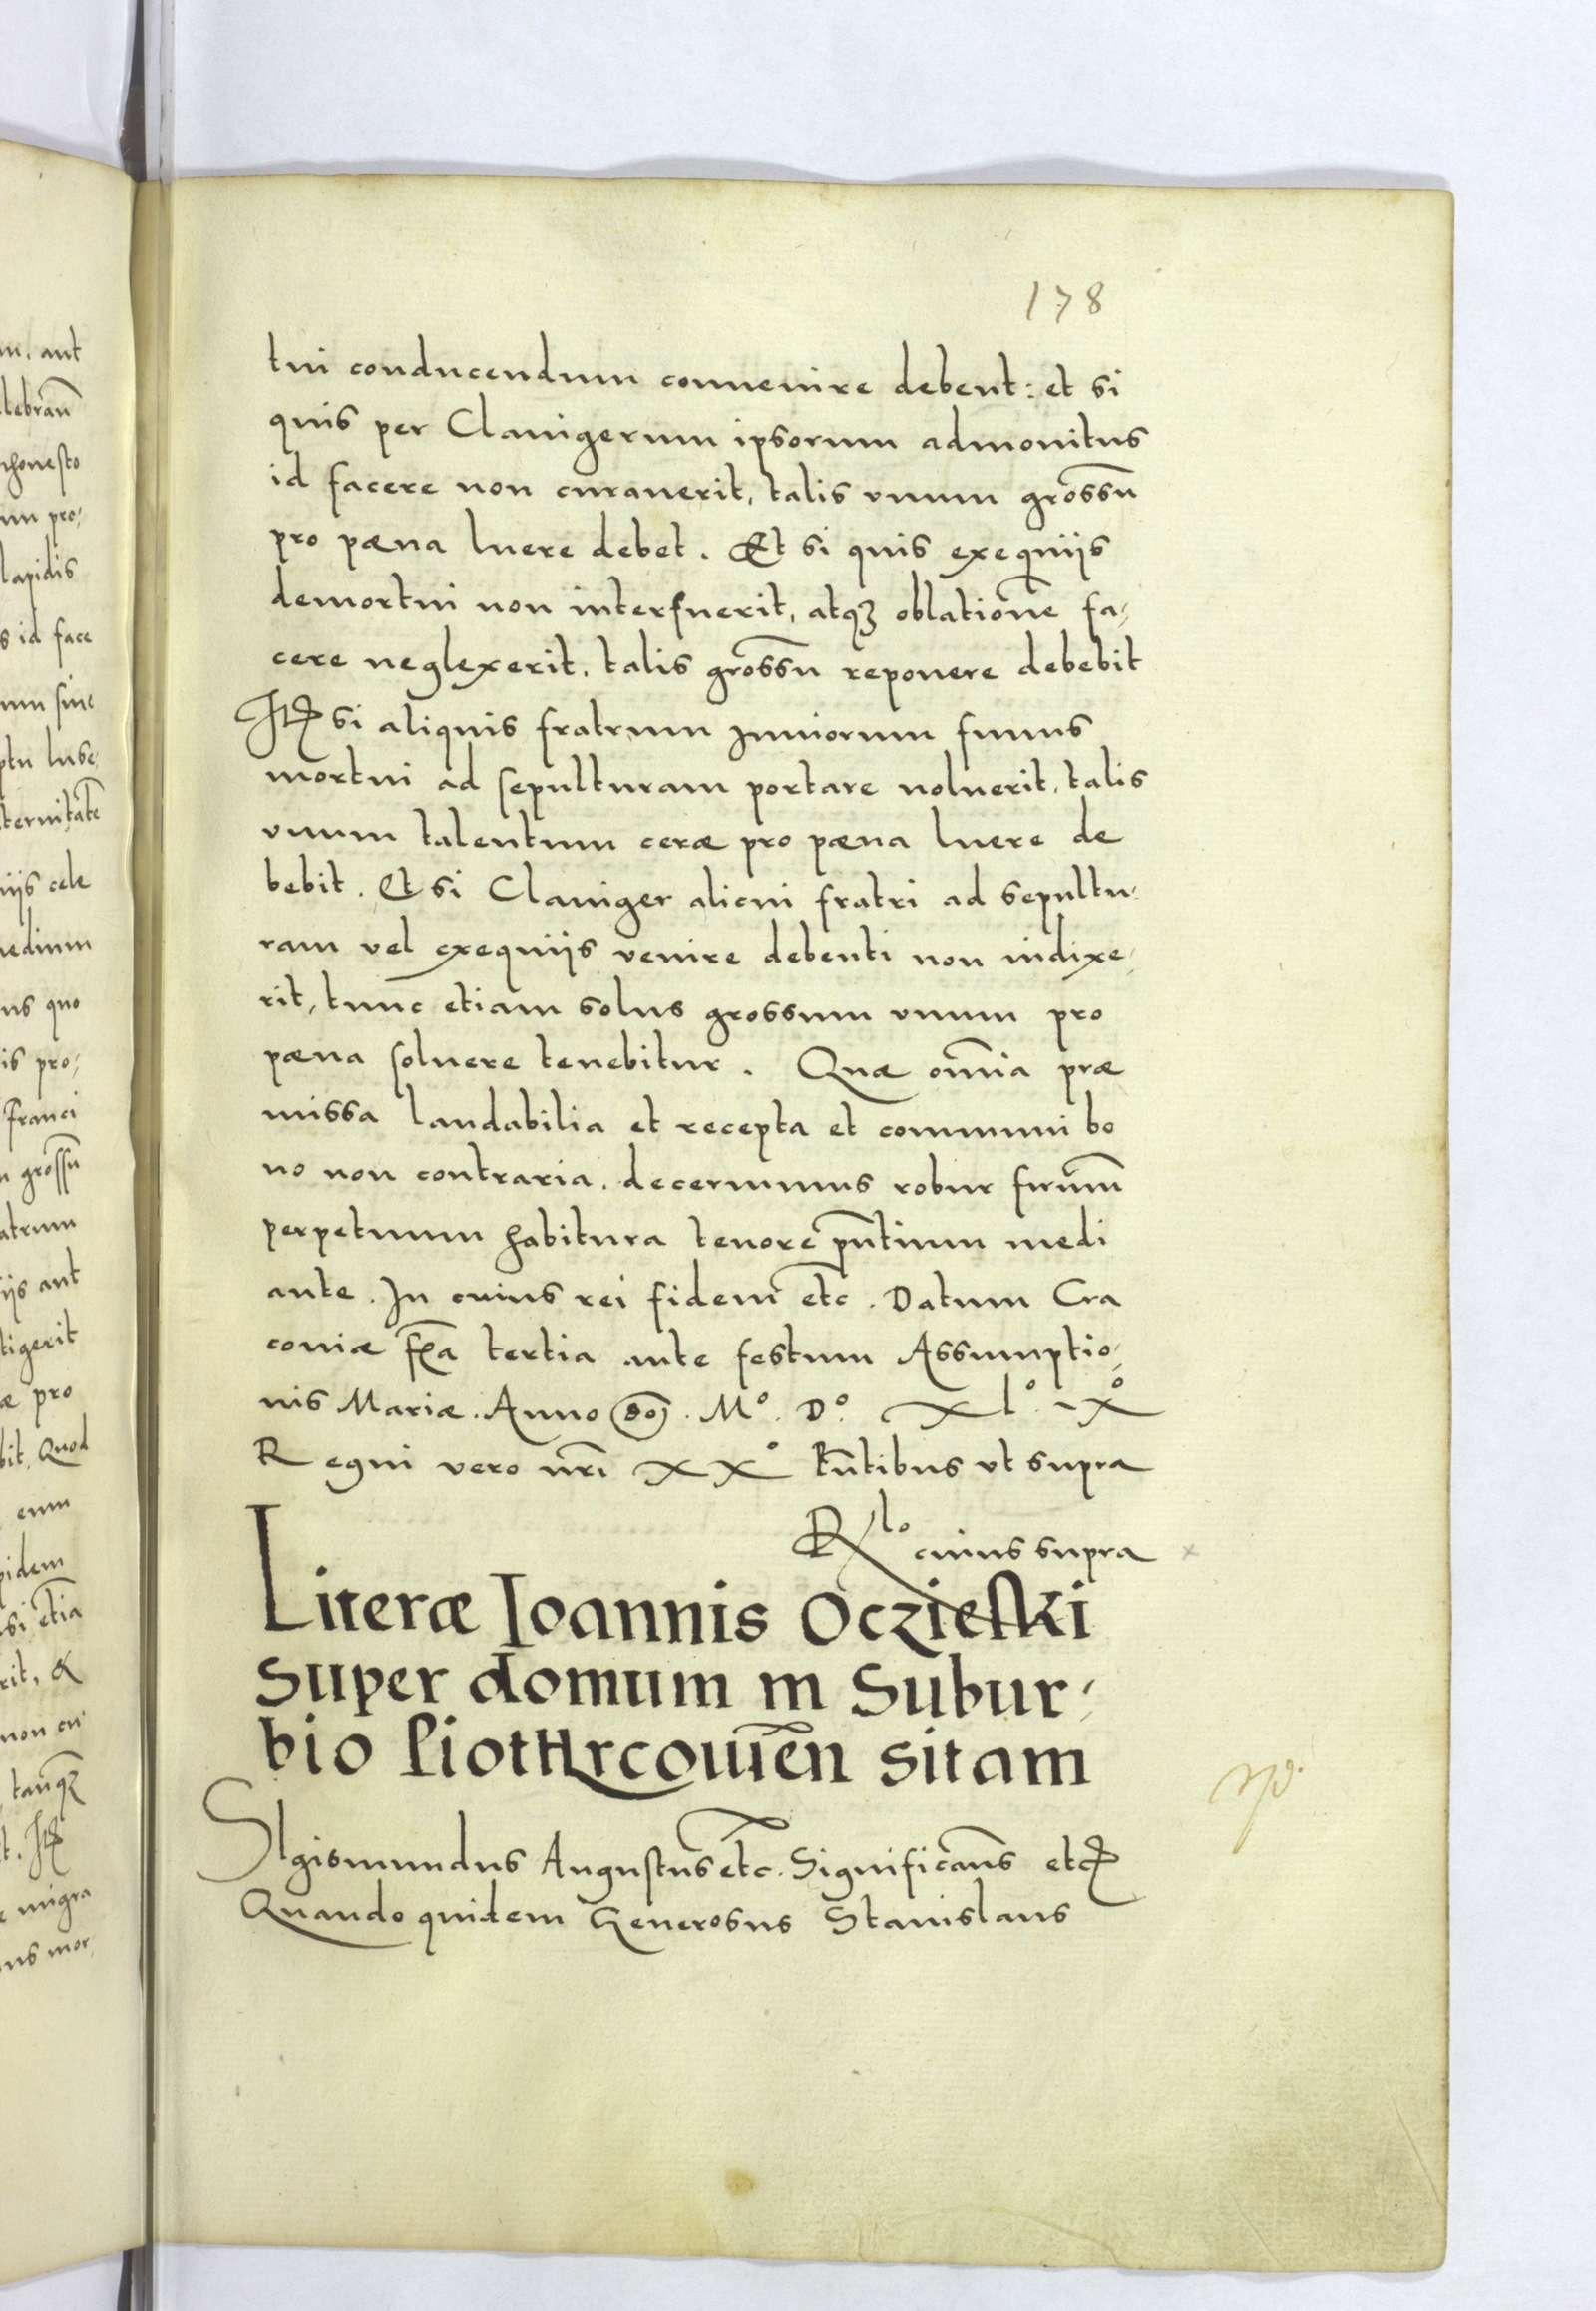 178
tui conducendum conuenire debent: et si
quis per Clauigerum ipsorum admonitus
id facere non curauerit, talis vnum grossũ
pro pæna luere debet. Et si quis exequiis
demortui non interfuerit, atqꝫ oblationẽ fa-
cere neglexerit, talis grossũ reponere debebit
Itẽ si aliquis fratrum iuniorum funus
mortui ad sepulturam portare noluerit, talis
vnum talentum ceræ pro pæna luere de
bebit. Et si Clauiger alicui fratri ad sepultu-
ram vel exequiis venire debenti non indixe-
rit, tunc etiam solus grossum vnum pro
pæna soluere tenebitur. Quæ oĩnia præ
missa laudabilia et recepta et communi bo
no non contraria. decernimus robur firmũ
perpetuum habitura tenore pñtium medi
ante. In cuius rei fidem etc. Datum Cra
couiæ fẽa tertia ante festum Assumptio-
nis Mariæ. Anno dõi. M° D° xl° ix°
Regni vero nrĩ xx° Pñtibus vt supra
Rlo cuius supra
Literæ Ioannis Oczieski
super domum in Subur-
bio Piothrcouieñ sitam
SIgismundus Augustus etc. Significamus etc
Quando quidem Generosus Stanislaus
tn. aut
lebrañ
honesto
um pro-
lapidis
s id face
um sine
ptu luse-
ternitatẽ
iis cele
medium
us quo
is pro-
Franci
grossũ
atrum
iis aut
tigerit
æ pro
bit. Quod
eum
pidem
si etiã
rit, &
non cu
tanqꝫ
t. Itẽ
migra
us mor-